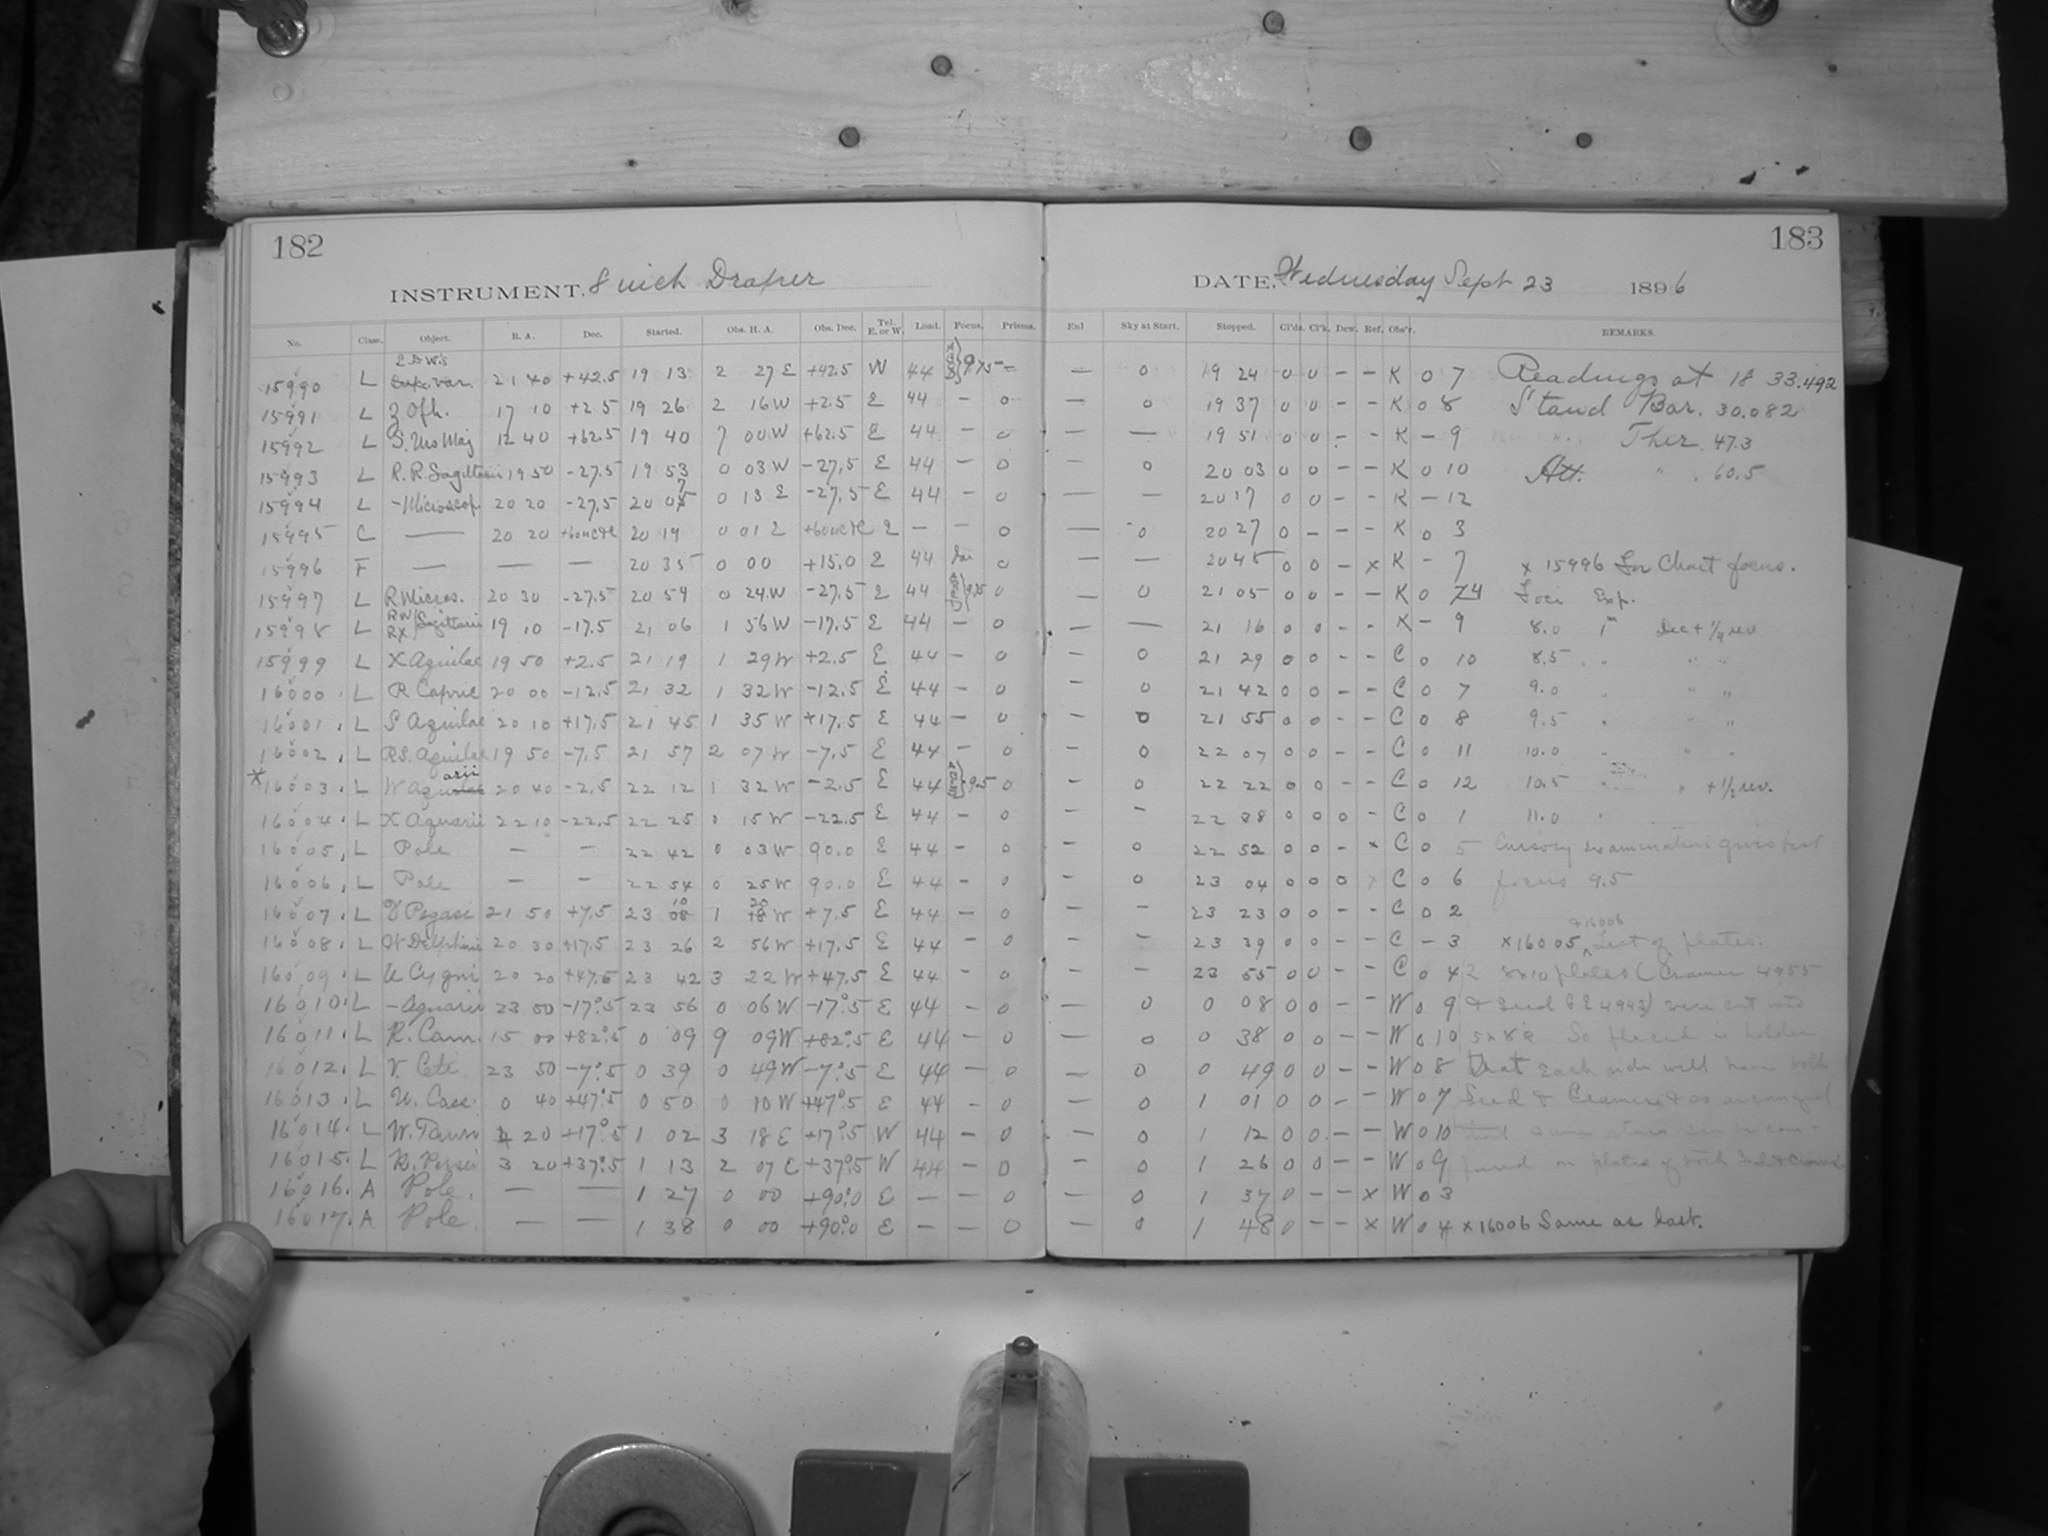 182
183
INSTRUMENT, 8 inch Draper
DATE, Wednesday Sept 23 1896
No. Class. Object. R. A. Dec. Started. Obs. H. A. Obs. Dec. Tel. E. or W. Load. Focus. Prisms. Enl Sky at Start. Stopped. Cl'ds. Cl'k. Dew. Ref. Obs'r. REMARKS.
15990 L var. 21 40 +42.5 19 13 2 27 E +42.5 W 44 9.75 — — o 19 24 o o – – K o 7 Readings at 18 33.492
15991 L Z Oph. 17 10 +2 5 19 26 2 16 W +2.5 E 44 – o — o 19 37 o o – – K o 8 Stand Bar. 30.082
15992 L S. Urs Maj 12 40 +62.5 19 40 7 00 W +62.5 E 44 – o — — 19 51 o o – – K – 9 " Ther 47.3
15993 L R. R. Sagittarii 19 50 -27.5 19 53 0 03 W -27.5 E 44 – o — o 20 03 o o – – K o 10 Att. " 60.5
15994 L – Microscop. 20 20 -27.5 20 07 0 13 E -27.5 E 44 – o — — 20 17 o o – – K – 12
15995 C — 20 20 20 19 0 01 E E – – o — o 20 27 o – – – K o 3
15996 F — — — 20 35 0 00 +15.0 E 44 o — — 20 45 o o – x K – 7 x 15996 For Chart focus.
15997 L R Micros. 20 30 -27.5 20 54 0 24 W -27.5 E 44 9.75 o — o 21 05 o o – – K o 4 Foci Exp.
15998 L RW RX Sagittarii 19 10 -17.5 21 06 1 56 W -17.5 E 44 – o — — 21 16 o o – – K – 9 8.0 1m Dec + 1/4 rev
15999 L X Aquilae 19 50 +2.5 21 19 1 29 W +2.5 E 44 – o — o 21 29 o o – – C o 10 8.5 " " "
16000 L R Capric 20 00 -12.5 21 32 1 32 W -12.5 E 44 – o — o 21 42 o o – – C o 7 9.0 " " "
16001 L S Aquilae 20 10 +17.5 21 45 1 35 W +17.5 E 44 – o — o 21 55 o o – – C o 8 9.5 " " "
16002 L RS. Aquilae 19 50 -7.5 21 57 2 07 W -7.5 E 44 – o — o 22 07 o o – – C o 11 10.0 " " "
x 16003 L W Aquarii 20 40 -2.5 22 12 1 32 W -2.5 E 44 9.5 o – o 22 22 o o – – C o 12 10.5 " + 1/2 rev.
16004 L X Aquarii 22 10 -22.5 22 25 0 15 W -22.5 E 44 – o – – 22 38 o o o – C o 1 11.0 "
16005 L Pole – – 22 42 0 03 W 90.0 E 44 – o – o 22 52 o o – x C o 5 Cursory examination gives best
16006 L Pole – – 22 54 0 25 W 90.0 E 44 – o – o 23 04 o o o x C o 6 focus 9.5
16007 L V Pegasi 21 50 +7.5 23 10 1 20 W +7.5 E 44 – o – – 23 23 o o – – C o 2
16008 L W Delphini 20 30 +17.5 23 26 2 56 W +17.5 E 44 – o – – 23 39 o o – – C – 3 x 16005 & 16006 Test of plates.
16009 L U Cygni 20 20 +47.5 23 42 3 22 W +47.5 E 44 – o – – 23 55 o o – – C o 4 2 8x10 plates (Cramer 4955
16010 L – Aquarii 23 50 -17°.5 23 56 0 06 W -17°.5 E 44 – o — o 0 08 o o – – W o 9 & Seed 4993) were cut into
16011 L R. Cam. 15 00 +82°.5 0 09 9 09 W +82°.5 E 44 – o — o 0 38 o o – – W o 10 5x8s So placed in holder
16012 L V. Ceti 23 50 -7°.5 0 39 0 49 W -7°.5 E 44 – o — o 0 49 o o – – W o 8 that each side will have both
16013 L U. Cass. 0 40 +47°.5 0 50 0 10 W +47°.5 E 44 – o — o 1 01 o o – – W o 7 Seed & Cramer & as arranged
16014 L W. Tauri 4 20 +17°.5 1 02 3 18 E +17°.5 W 44 – o – o 1 12 o o – – W o 10 that same stars can be com-
16015 L R. Persei 3 20 +37°.5 1 13 2 07 E +37°.5 W 44 – o – o 1 26 o o – – W o 9 pared on plates of both Seed & Cramer
16016 A Pole. — — 1 27 0 00 +90°.0 E – – o – o 1 37 o – – x W o 3
16017 A Pole. — — 1 38 0 00 +90°.0 E – – o – o 1 48 o – – x W o 4 x 16006 Same as last.